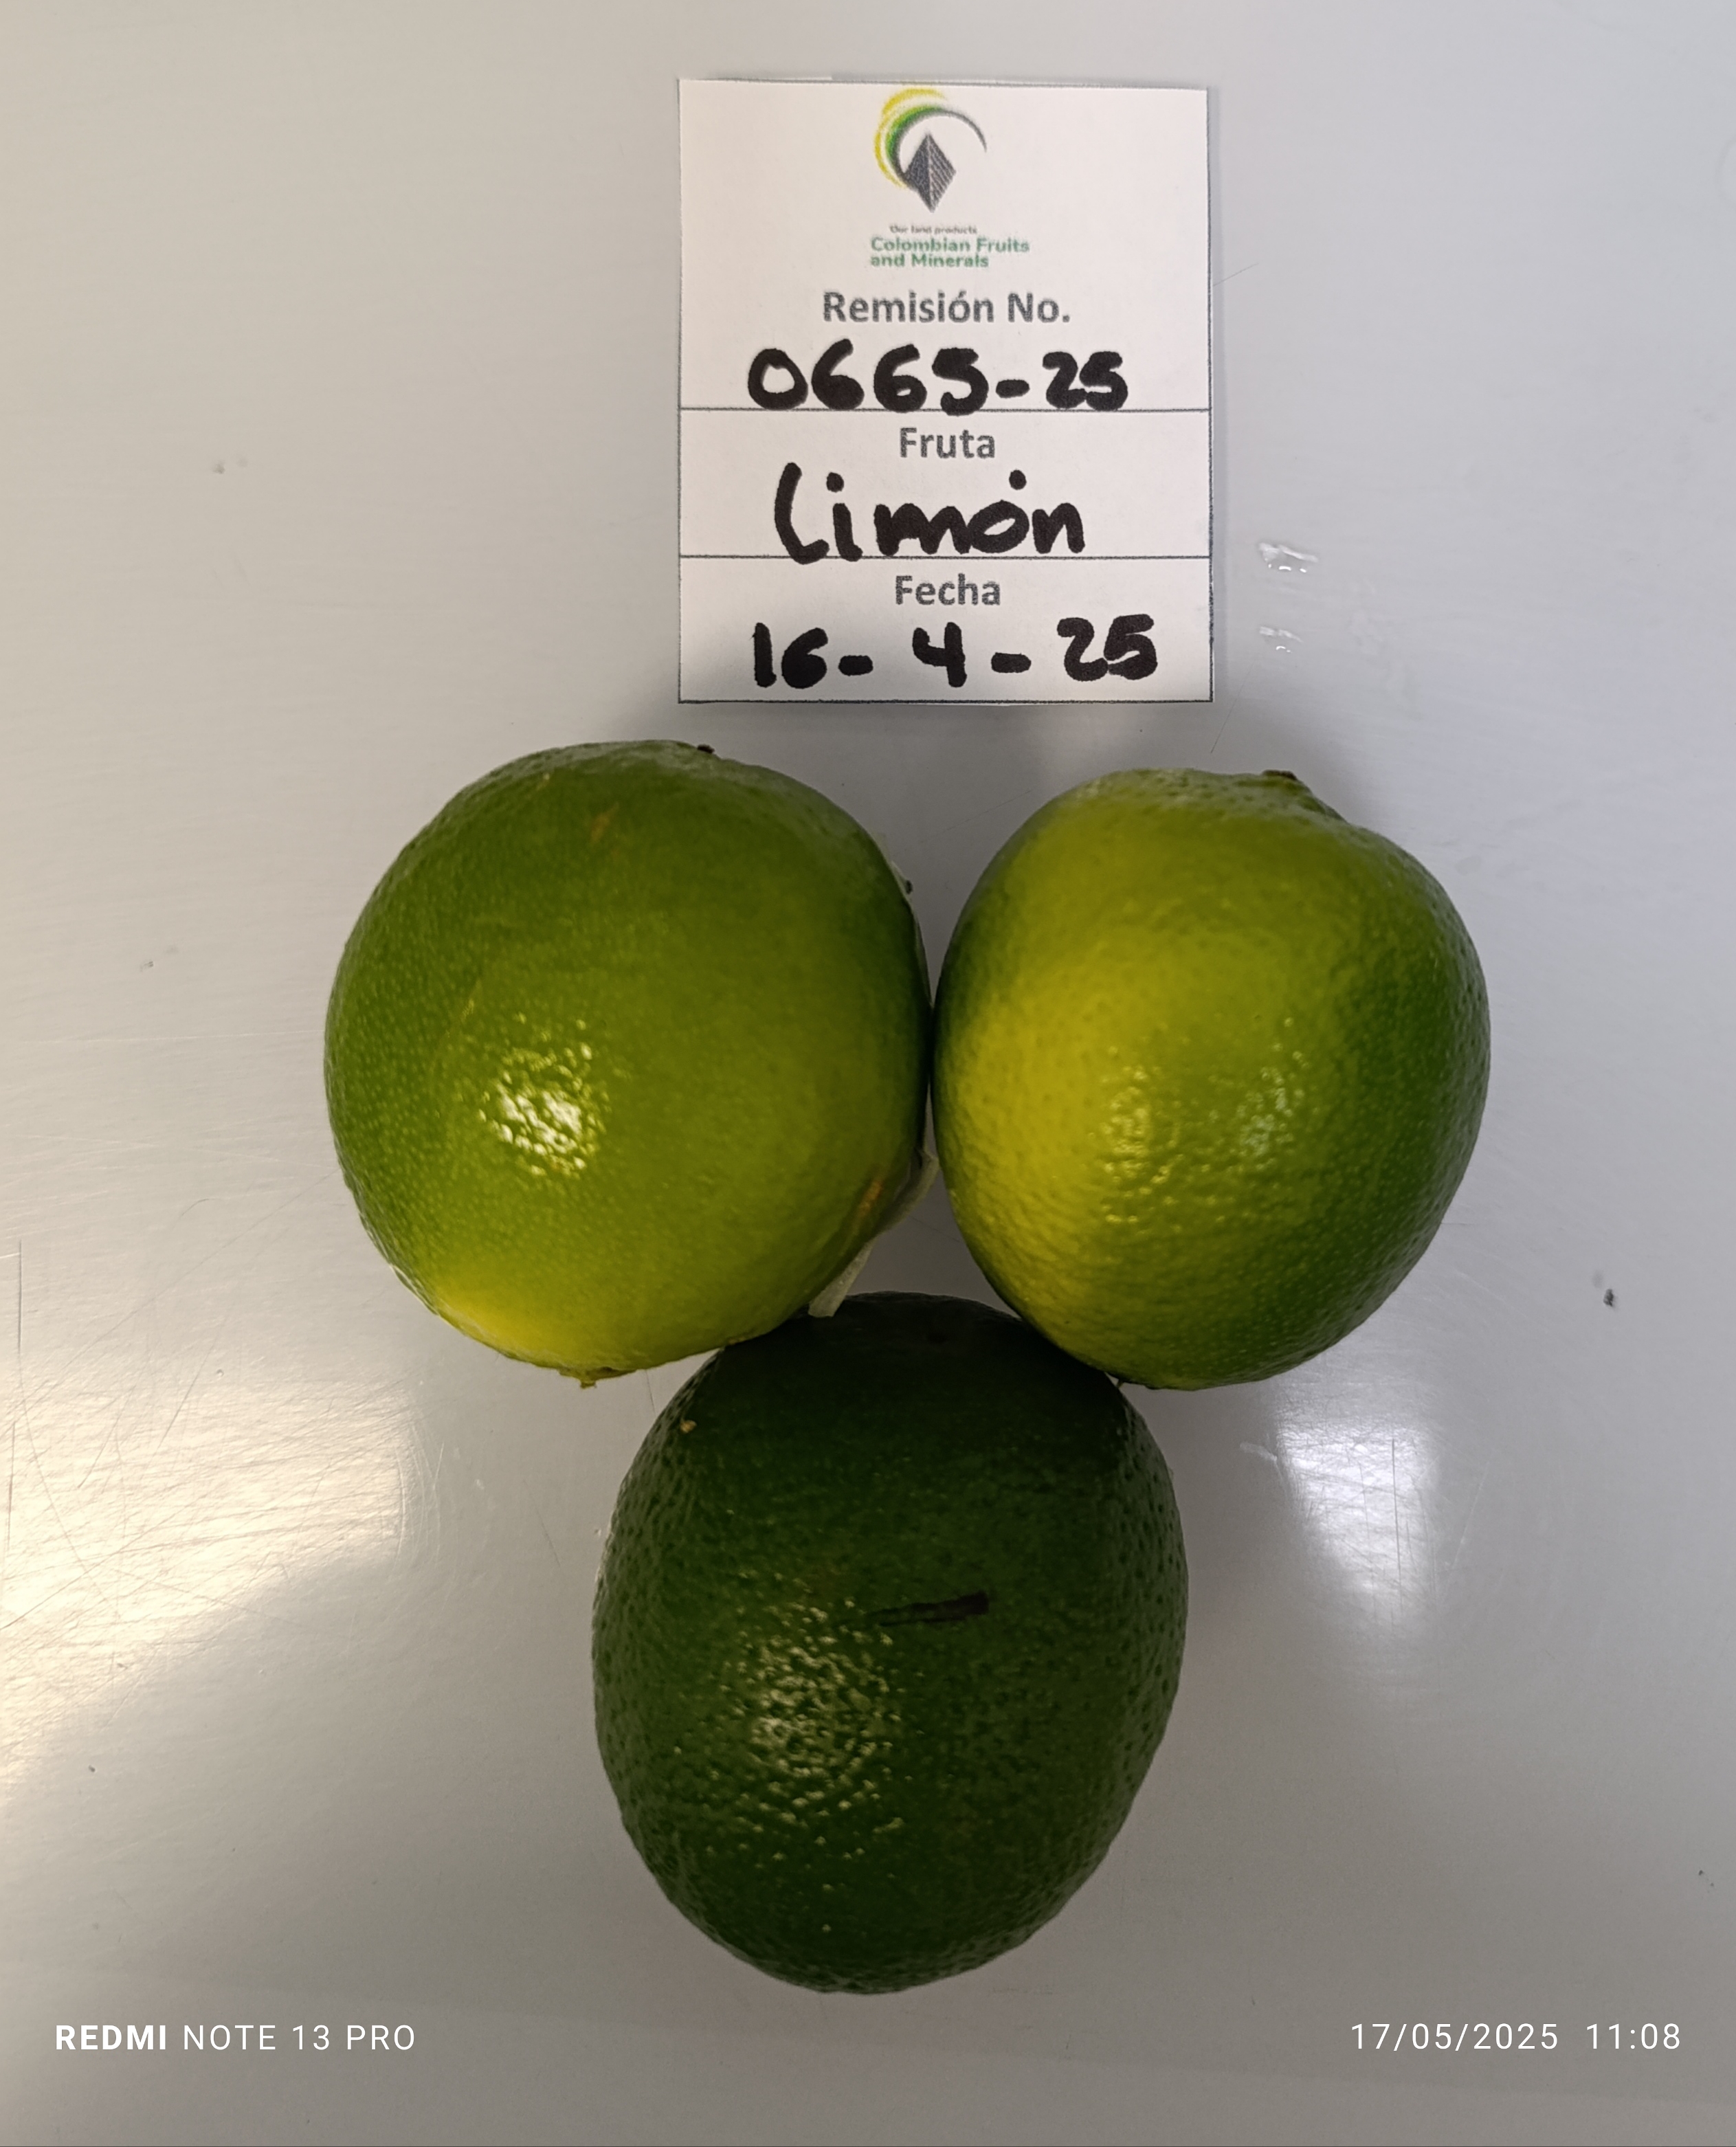 Our land products
Colombian Fruits
and Minerals
Remisión No.
0665-25
Fruta
Limón
Fecha
16-4-25
REDMI NOTE 13 PRO
17/05/2025 11:08